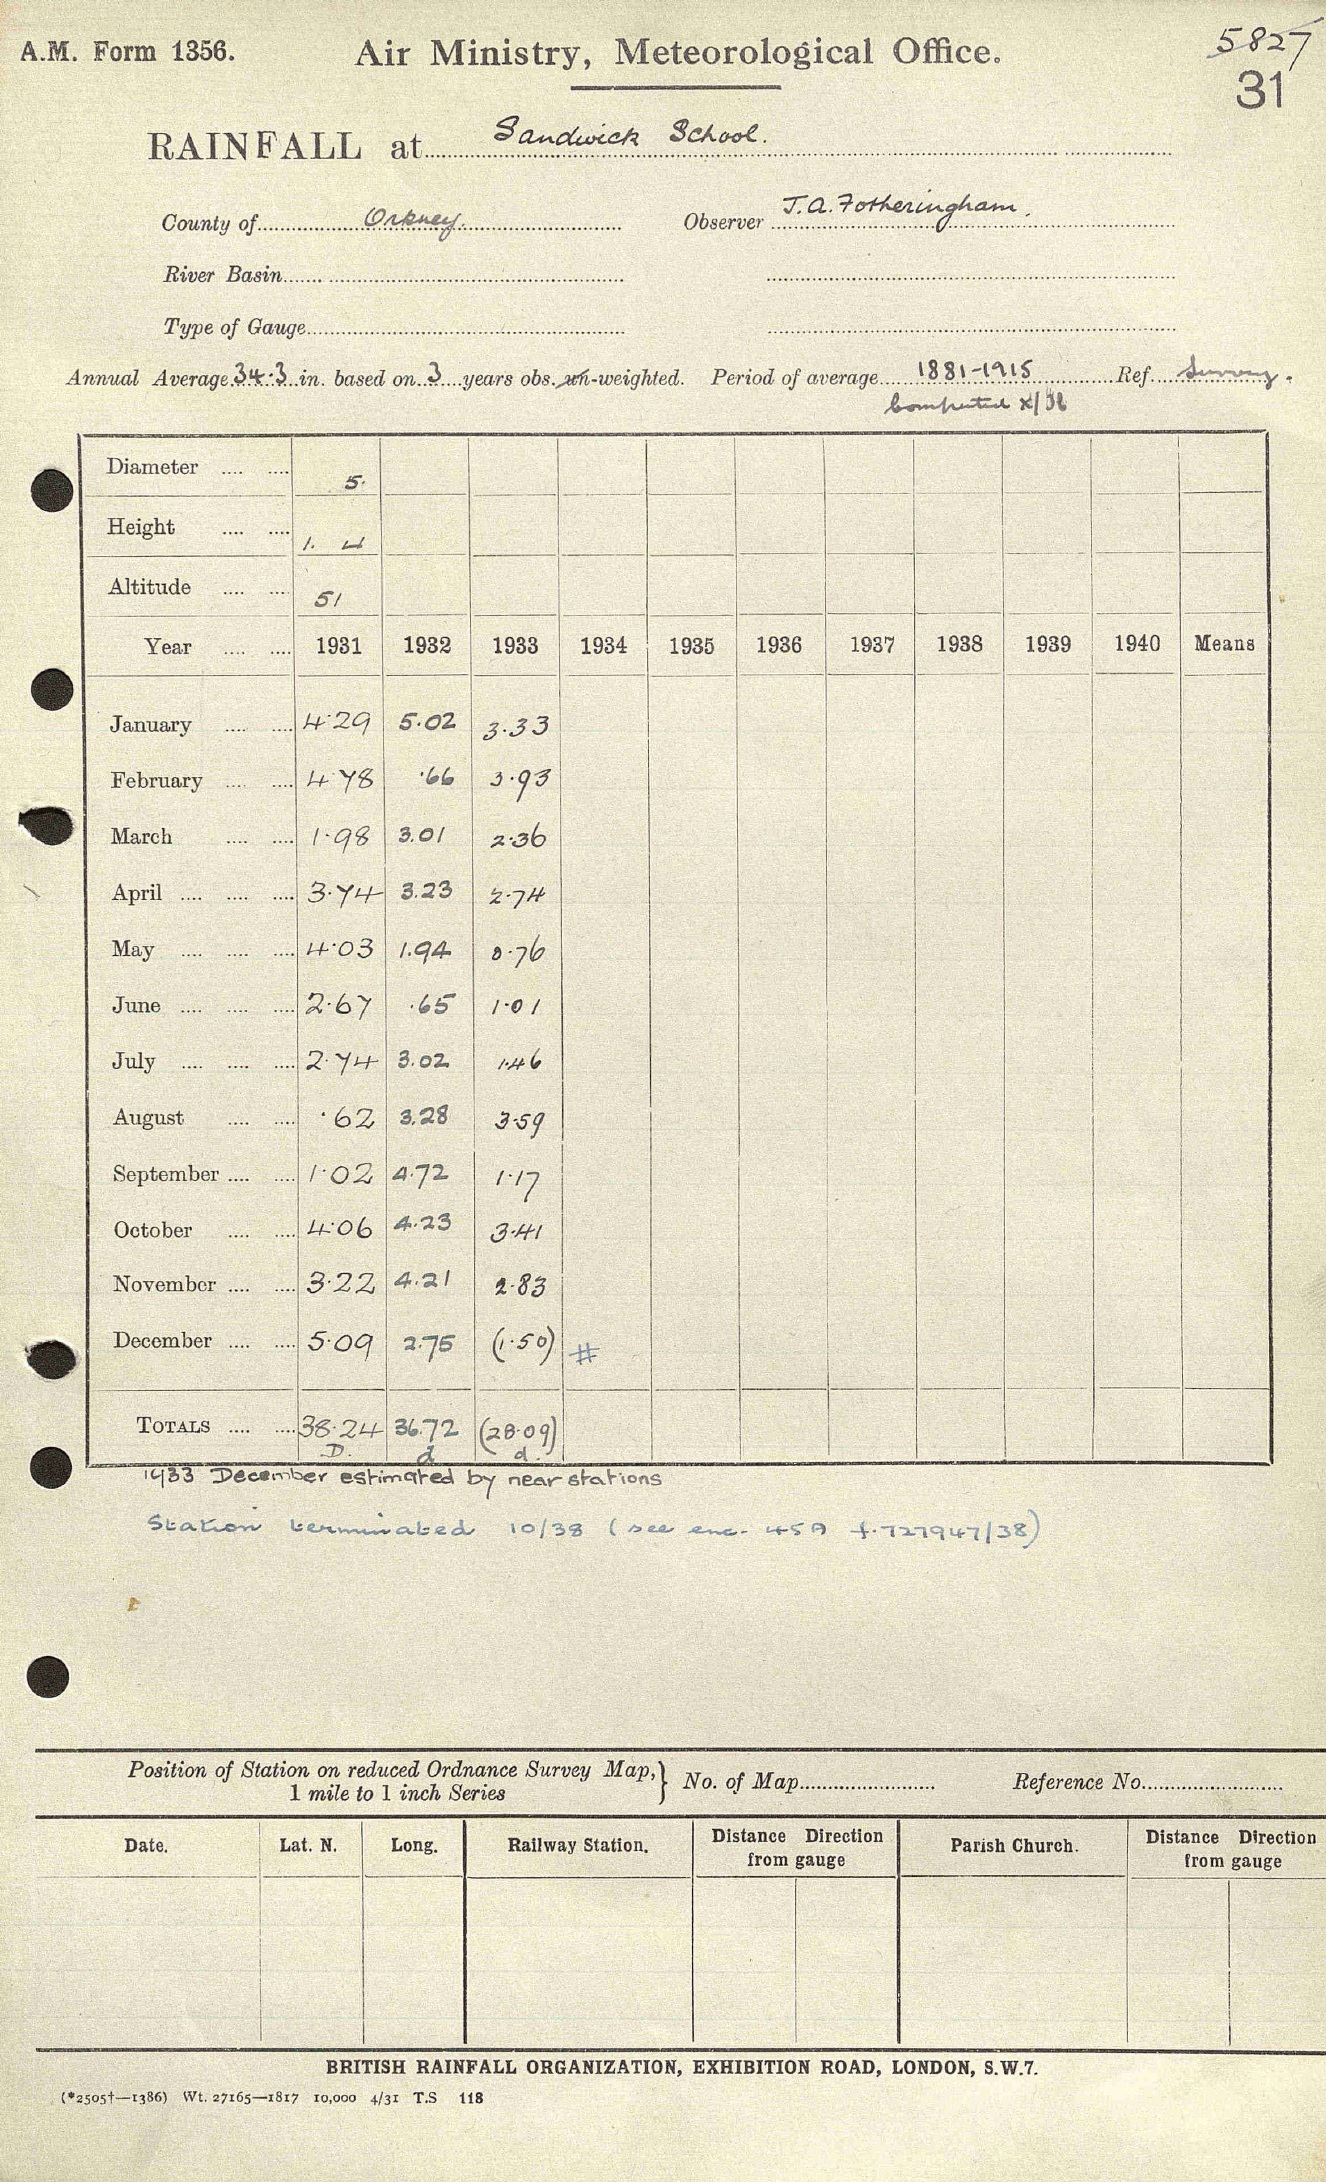 A.M. Form 1356. Air Ministry, Meteorological Office. 5827
31
RAINFALL at Sandwick School.
County of Orkney. Observer J.A. Fotheringham.
River Basin
Type of Gauge
Annual Average 34.3 in. based on 3 years obs. un-weighted. Period of average 1881-1915 Ref. Survey.
Computed X/36
Diameter 5.
Height 1. 4
Altitude 51
Year 1931 1932 1933 1934 1935 1936 1937 1938 1939 1940 Means
January 4.29 5.02 3.33
February 4.78 .66 3.93
March 1.98 3.01 2.36
April 3.74 3.23 2.74
May 4.03 1.94 0.76
June 2.67 .65 1.01
July 2.74 3.02 1.46
August .62 3.28 3.59
September 1.02 4.72 1.17
October 4.06 4.23 3.41
November 3.22 4.21 2.83
December 5.09 2.75 (1.50) #
TOTALS 38.24 36.72 (28.09)
D. d d.
1933 December estimated by near stations
Station terminated 10/38 (see enc. 45A f.727947/38)
Position of Station on reduced Ordnance Survey Map, } No. of Map Reference No.
1 mile to 1 inch Series
Date. Lat. N. Long. Railway Station. Distance Direction from gauge Parish Church. Distance Direction from gauge
BRITISH RAINFALL ORGANIZATION, EXHIBITION ROAD, LONDON, S.W.7.
(*2505†—1386) Wt. 27165—1817 10,000 4/31 T.S 118